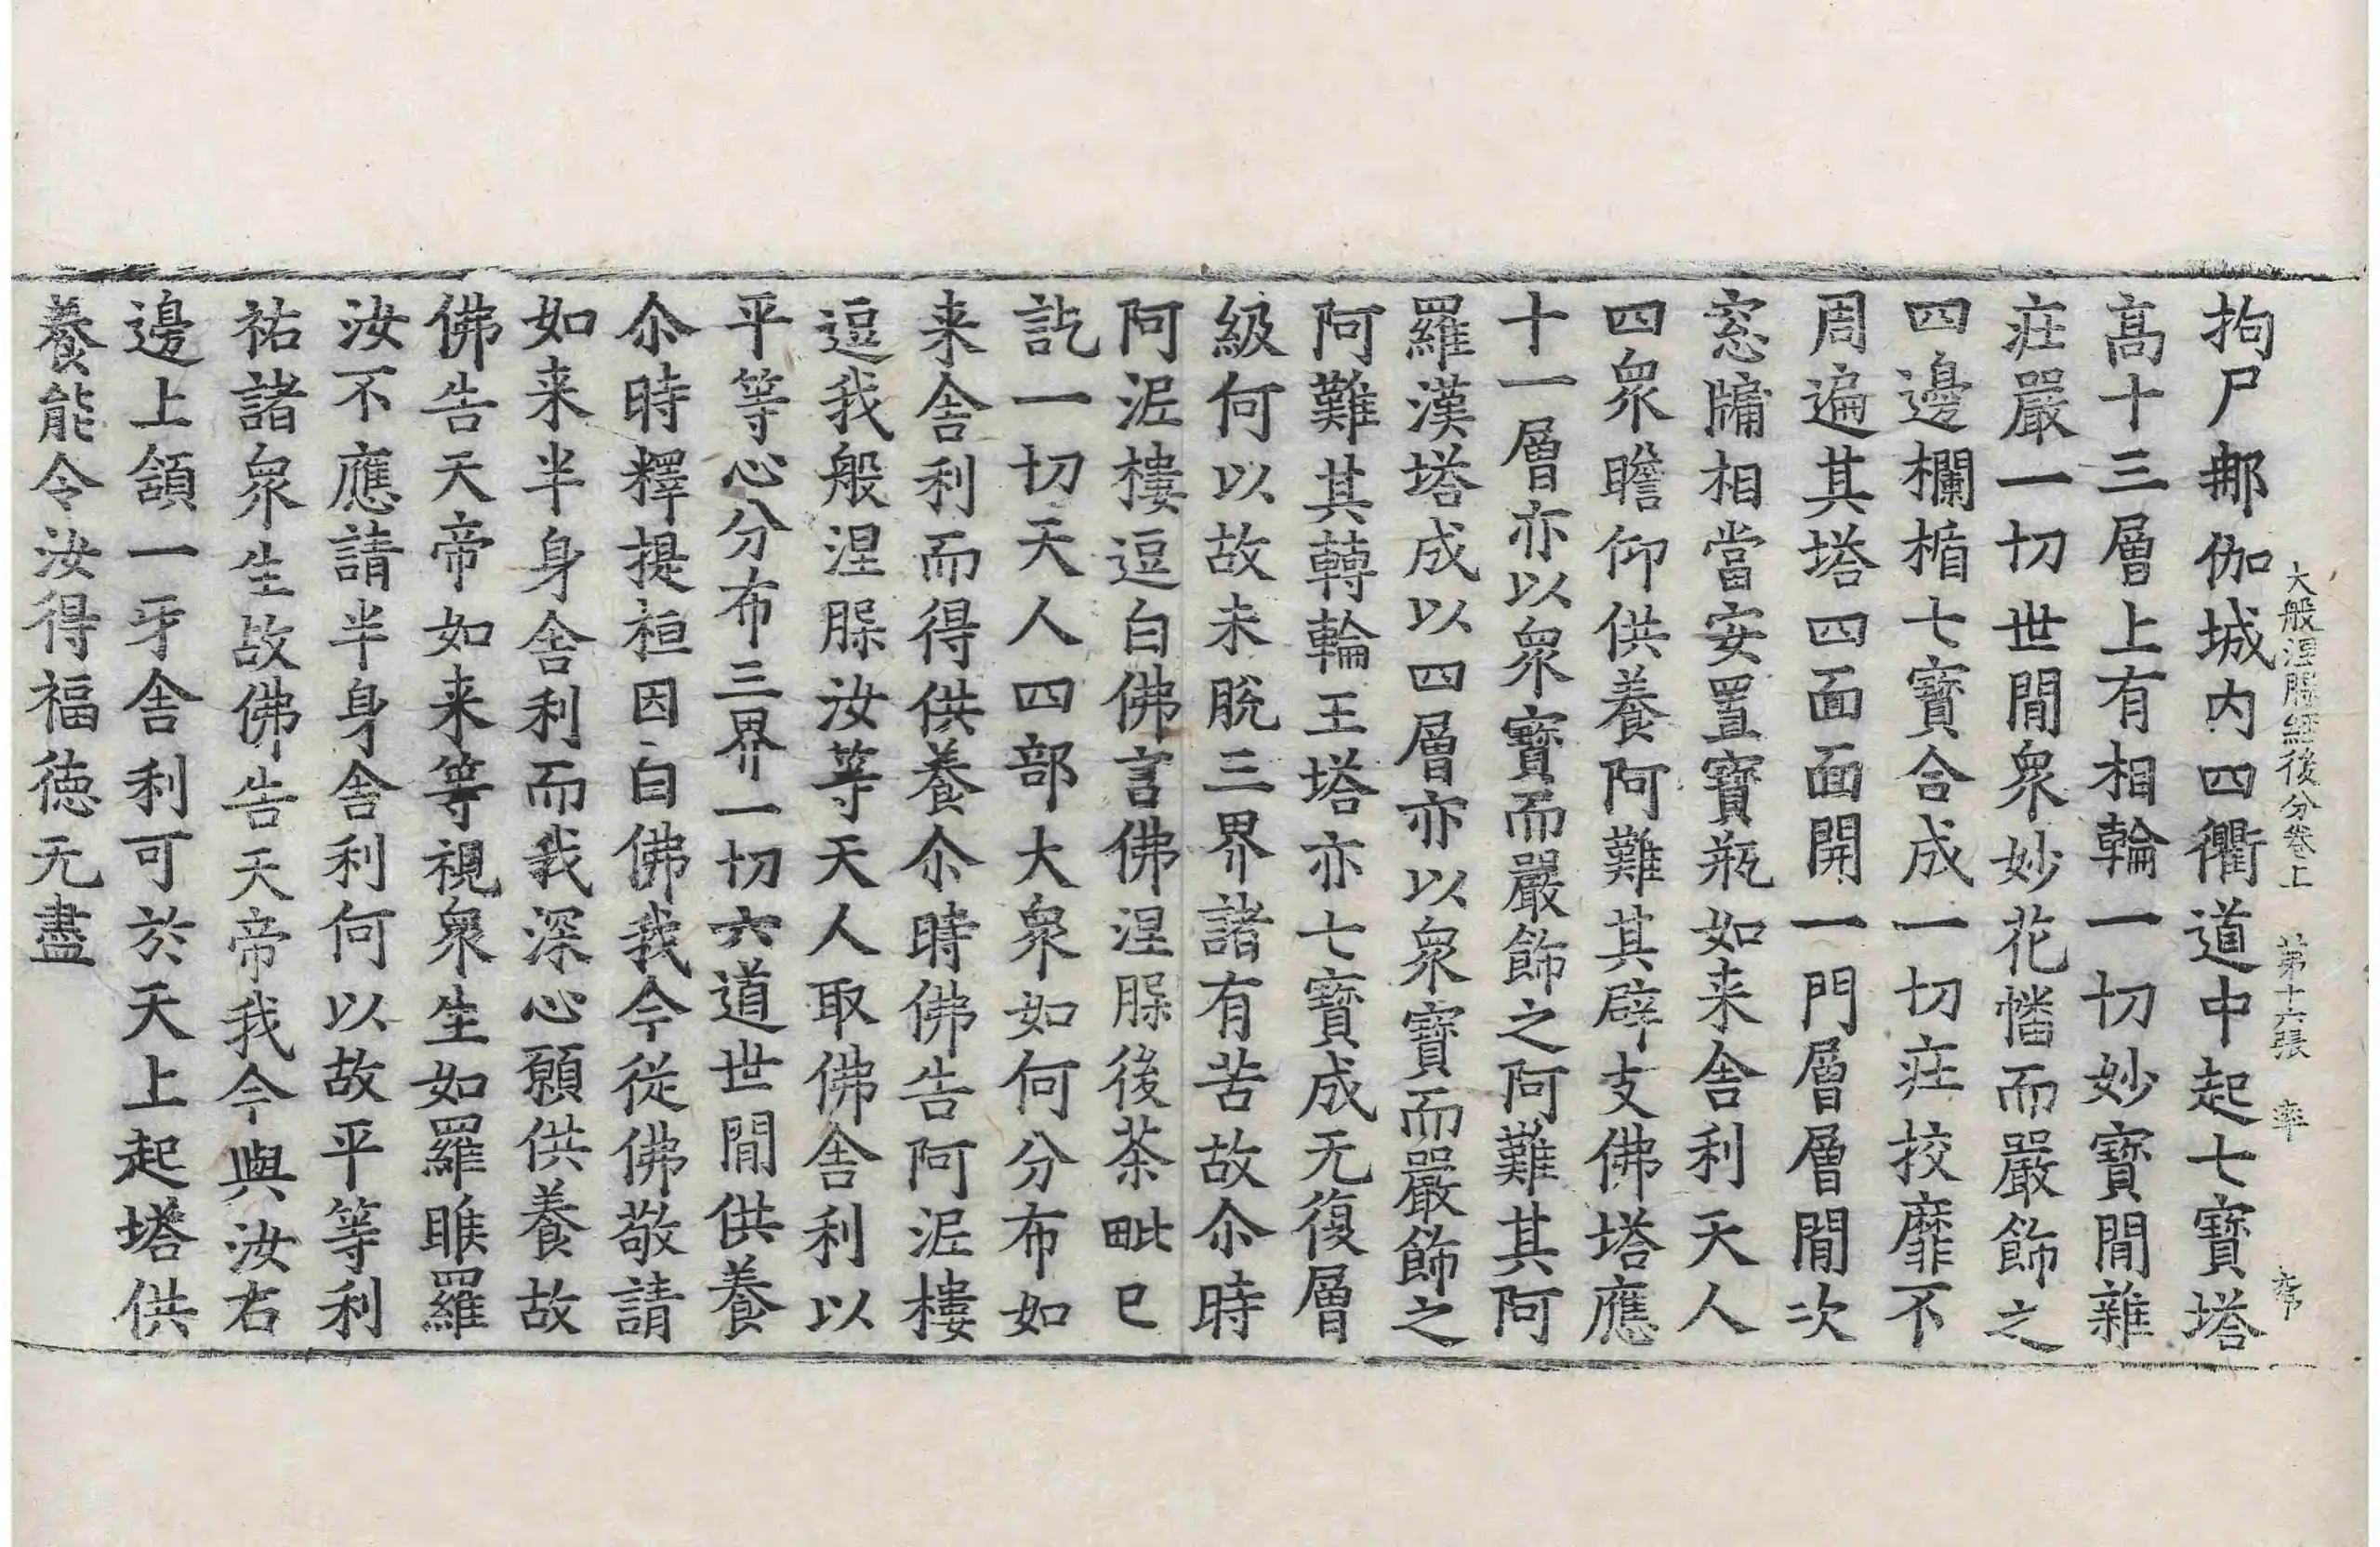 大般涅槃經後分卷上 第十六張 率
拘尸那伽城内四衢道中起七寶塔
髙十三層上有相輪一切妙寶閒雜
莊嚴一切世閒衆妙花幡而嚴飾之
四邊欄楯七寶合成一切莊挍靡不
周遍其塔四面面開一門層層閒次
窓牖相當安置寶瓶如来舍利天人
四衆瞻仰供養阿難其辟支佛塔應
十一層亦以衆寶而嚴飾之阿難其阿
羅漢塔成以四層亦以衆寶而嚴飾之
阿難其轉輪王塔亦七寶成无復層
級何以故未脫三界諸有苦故尒時
阿泥樓逗白佛言佛涅槃後茶毗已
訖一切天人四部大衆如何分布如
来舍利而得供養尒時佛告阿泥樓
逗我般涅槃汝等天人取佛舍利以
平等心分布三界一切六道世閒供養
尒時釋提桓因白佛我今從佛敬請
如来半身舍利而我深心願供養故
佛告天帝如来等視衆生如羅睺羅
汝不應請半身舍利何以故平等利
祐諸衆生故佛告天帝我今與汝右
邊上頷一牙舍利可於天上起塔供
養能令汝得福徳无盡